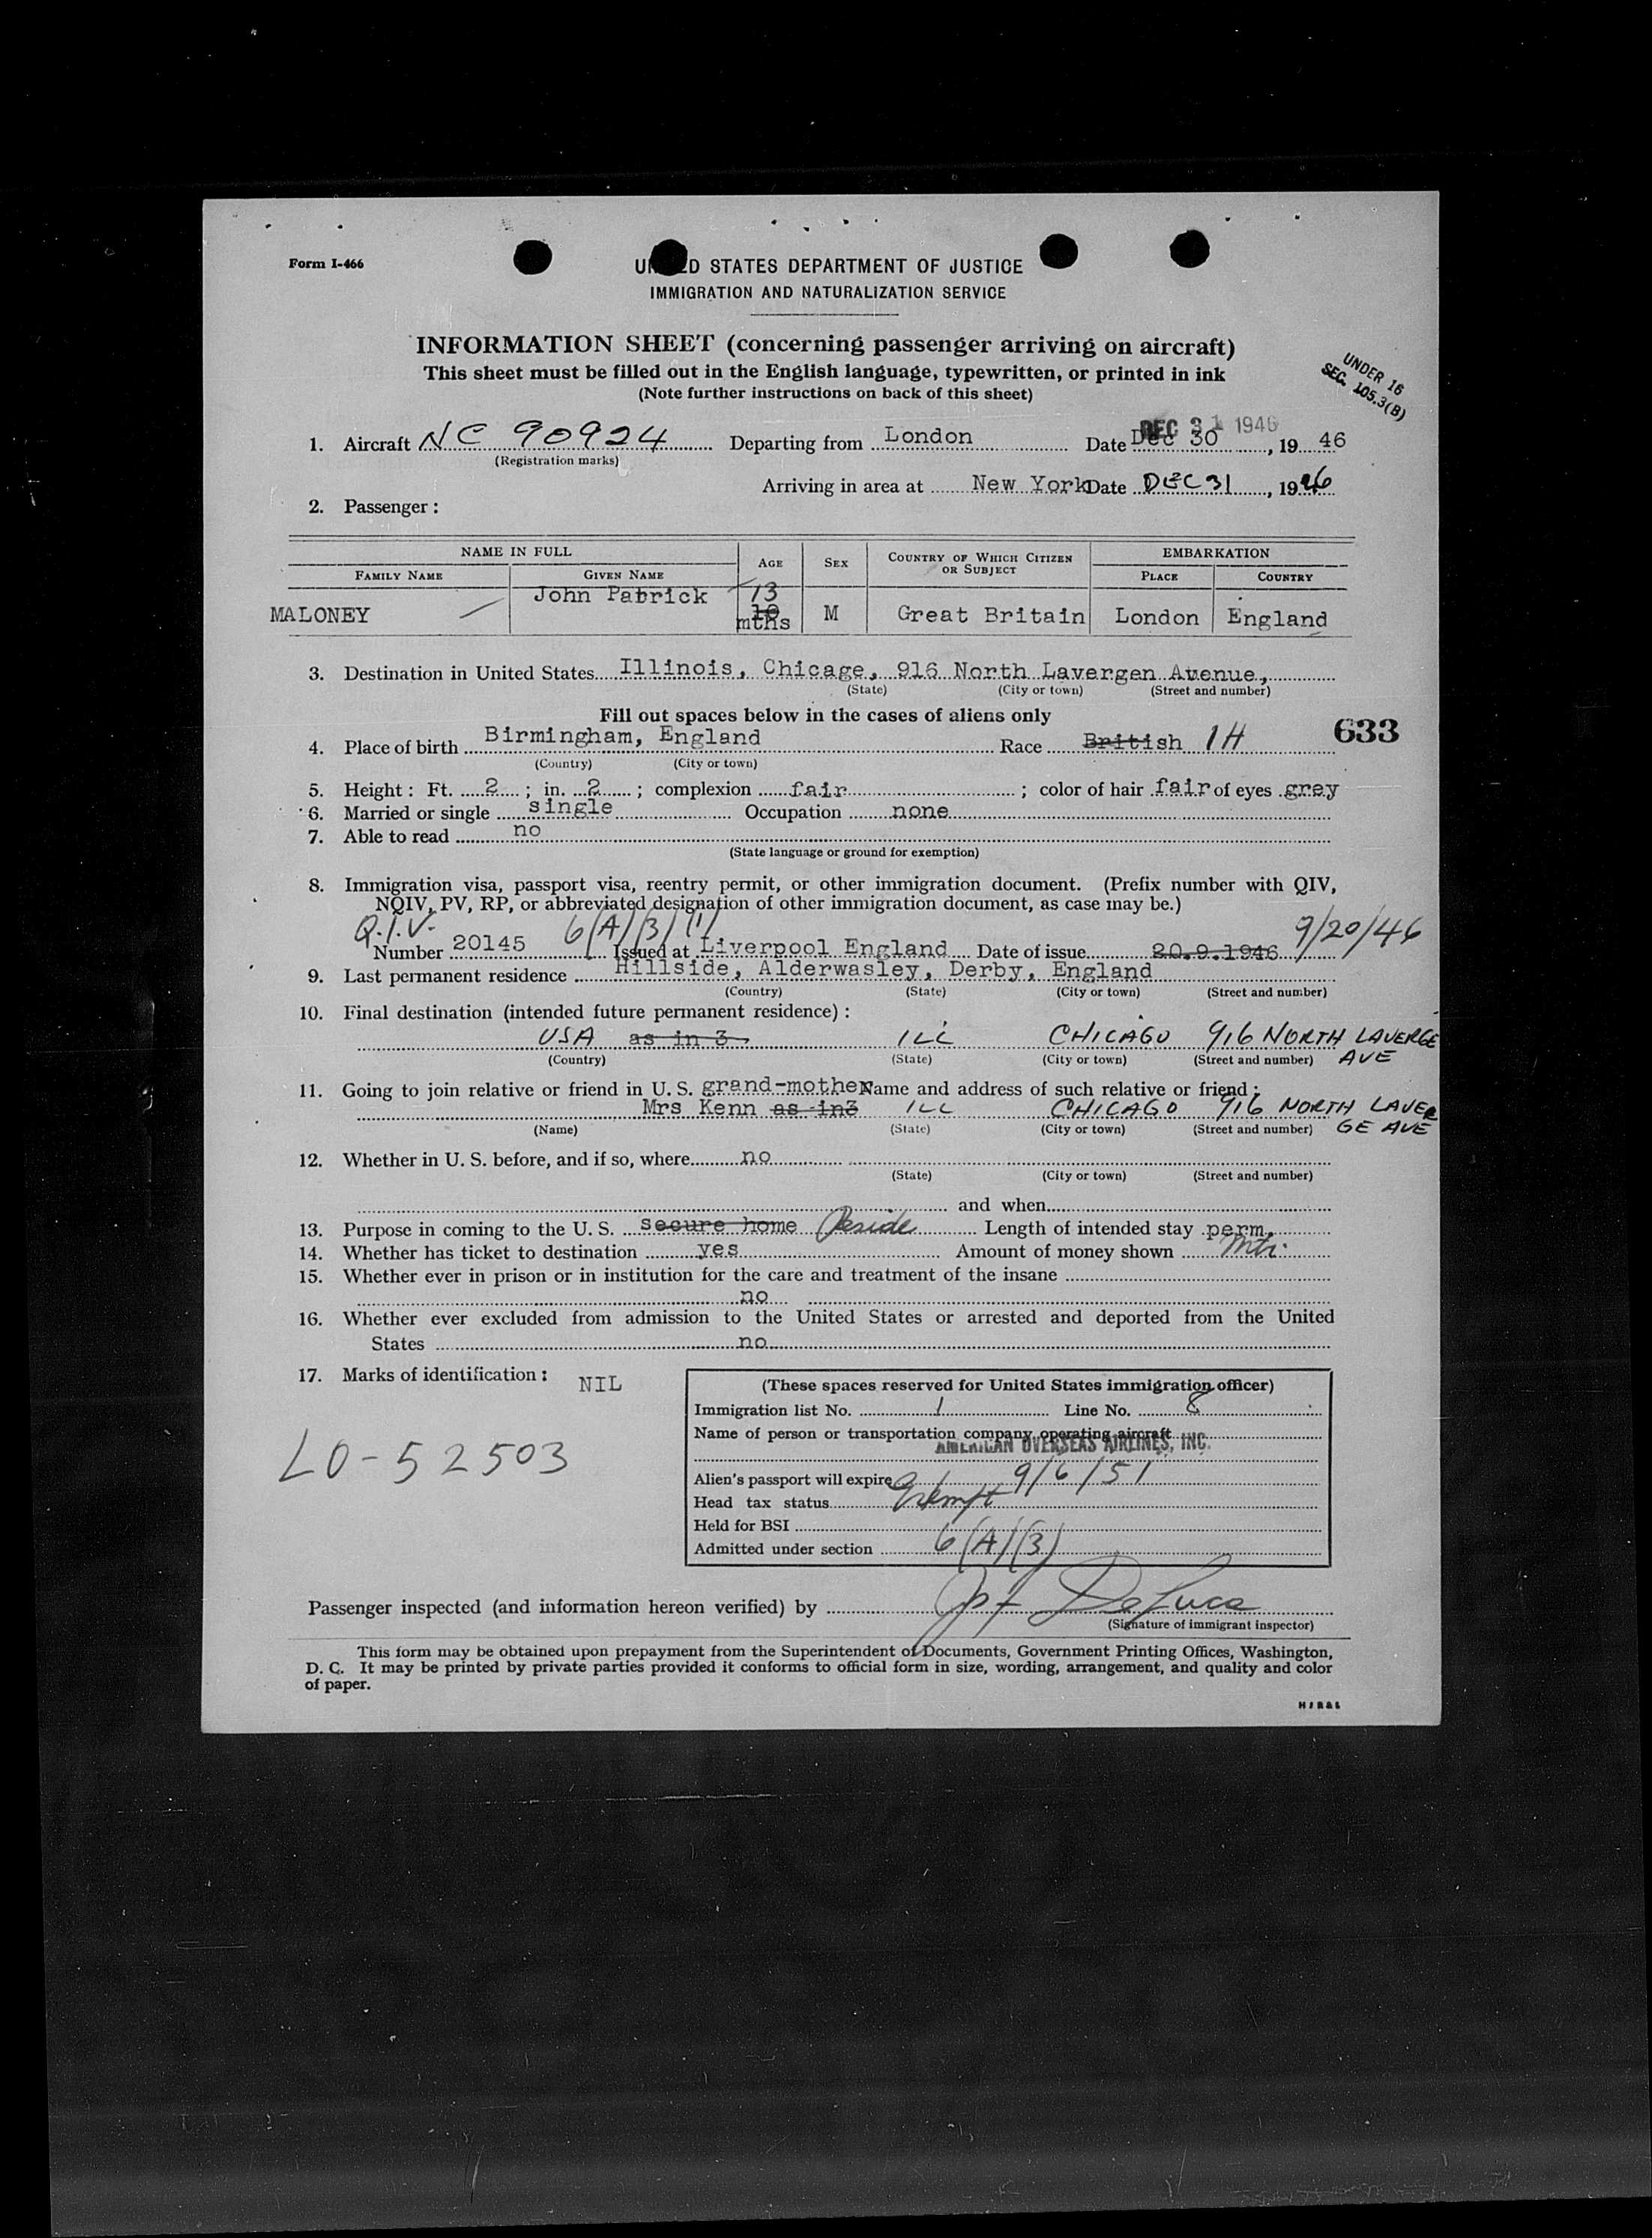 Form I-466
UNITED STATES DEPARTMENT OF JUSTICE
IMMIGRATION AND NATURALIZATION SERVICE
INFORMATION SHEET (concerning passenger arriving on aircraft)
This sheet must be filled out in the English language, typewritten, or printed in ink
(Note further instructions on back of this sheet)
UNDER 16
SEC. 105.3(B)
DEC 31 1946
1. Aircraft NC 90924 Departing from London Date Dec 30, 19 46
(Registration marks)
Arriving in area at New York Date DEC 31, 1946
2. Passenger:
NAME IN FULL AGE SEX COUNTRY OF WHICH CITIZEN OR SUBJECT EMBARKATION
FAMILY NAME GIVEN NAME PLACE COUNTRY
MALONEY John Patrick 13 10 mths M Great Britain London England
3. Destination in United States Illinois, Chicage, 916 North Lavergen Avenue,
(State) (City or town) (Street and number)
Fill out spaces below in the cases of aliens only
633
4. Place of birth Birmingham, England Race British 1H
(Country) (City or town)
5. Height: Ft. 2; in. 2; complexion fair; color of hair fair of eyes grey
6. Married or single single Occupation none
7. Able to read no
(State language or ground for exemption)
8. Immigration visa, passport visa, reentry permit, or other immigration document. (Prefix number with QIV,
NQIV, PV, RP, or abbreviated designation of other immigration document, as case may be.)
Q.I.V. 6(A)(3)(1) 9/20/46
Number 20145 Issued at Liverpool England Date of issue 20.9.1946
9. Last permanent residence Hillside, Alderwasley, Derby, England
(Country) (State) (City or town) (Street and number)
10. Final destination (intended future permanent residence):
USA as in 3. ILL CHICAGO 916 NORTH LAVERGE
(Country) (State) (City or town) (Street and number) AVE
11. Going to join relative or friend in U. S. grand-mother Name and address of such relative or friend:
Mrs Kenn as in3 ILL CHICAGO 916 NORTH LAVER
(Name) (State) (City or town) (Street and number) GE AVE
12. Whether in U. S. before, and if so, where no
(State) (City or town) (Street and number)
and when
13. Purpose in coming to the U. S. secure home Reside Length of intended stay perm.
14. Whether has ticket to destination yes Amount of money shown
15. Whether ever in prison or in institution for the care and treatment of the insane
no
16. Whether ever excluded from admission to the United States or arrested and deported from the United
States no
17. Marks of identification: NIL
LO-52503
(These spaces reserved for United States immigration officer)
Immigration list No. 1 Line No. 8
Name of person or transportation company operating aircraft
AMERICAN OVERSEAS AIRLINES, INC.
Alien's passport will expire 9/6/51
Head tax status Exempt
Held for BSI
Admitted under section 6(A)(3)
Passenger inspected (and information hereon verified) by Jos F DeLuca
(Signature of immigrant inspector)
This form may be obtained upon prepayment from the Superintendent of Documents, Government Printing Offices, Washington,
D. C. It may be printed by private parties provided it conforms to official form in size, wording, arrangement, and quality and color
of paper.